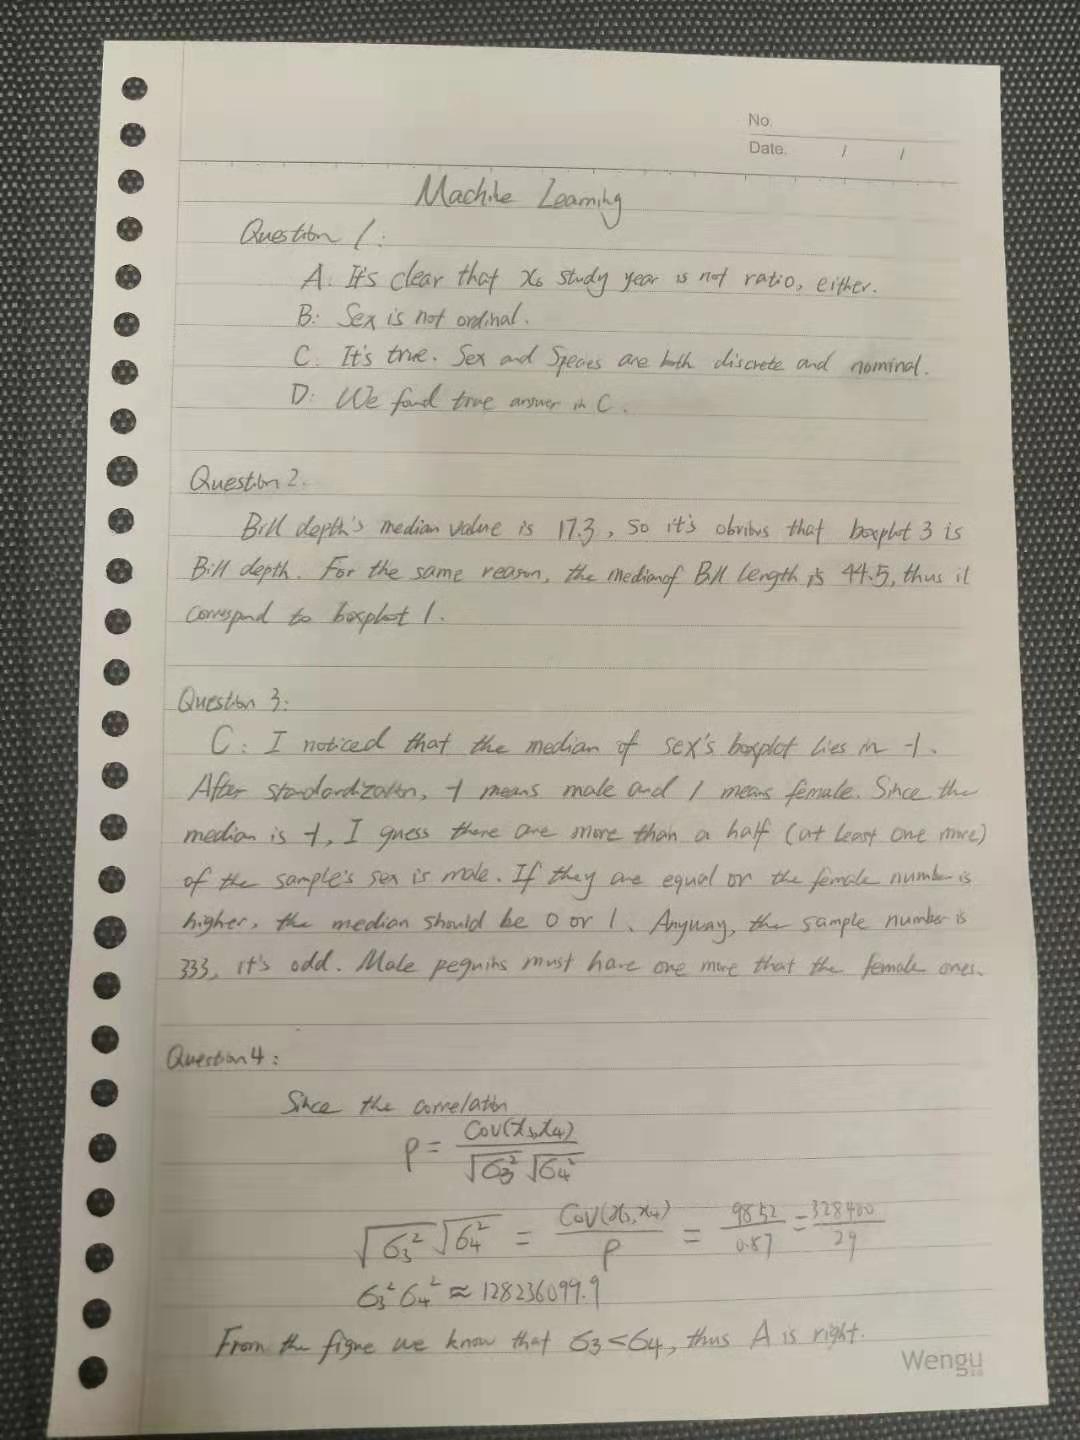 No.
Date. / /
Machine Learning
Question 1:
A. It's clear that x6 study year is not ratio, either.
B: Sex is not ordinal.
C. It's true. Sex and Species are both discrete and nominal.
D: We found true answer in C.
Question 2.
Bill depth's median value is 17.3, so it's obvious that boxplot 3 is
Bill depth. For the same reason, the median of Bill length is 44.5, thus it
correspond to boxplot 1.
Question 3:
C: I noticed that the median of sex's boxplot lies in -1.
After standardization, -1 means male and 1 means female. Since the
median is -1, I guess there are more than a half (at least one more)
of the sample's sex is male. If they are equal or the female number is
higher, the median should be 0 or 1. Anyway, the sample number is
333, it's odd. Male peguins must have one more that the female ones.
Question 4:
Since the correlation
ρ = Cov(x3,x4) / √σ3² √σ4²
√σ3² √σ4² = Cov(x3,x4) / ρ = 9852 / 0.87 = 328400 / 29
σ3² σ4² ≈ 128236099.9
From the figue we know that σ3 < σ4, thus A is right.
Wengu